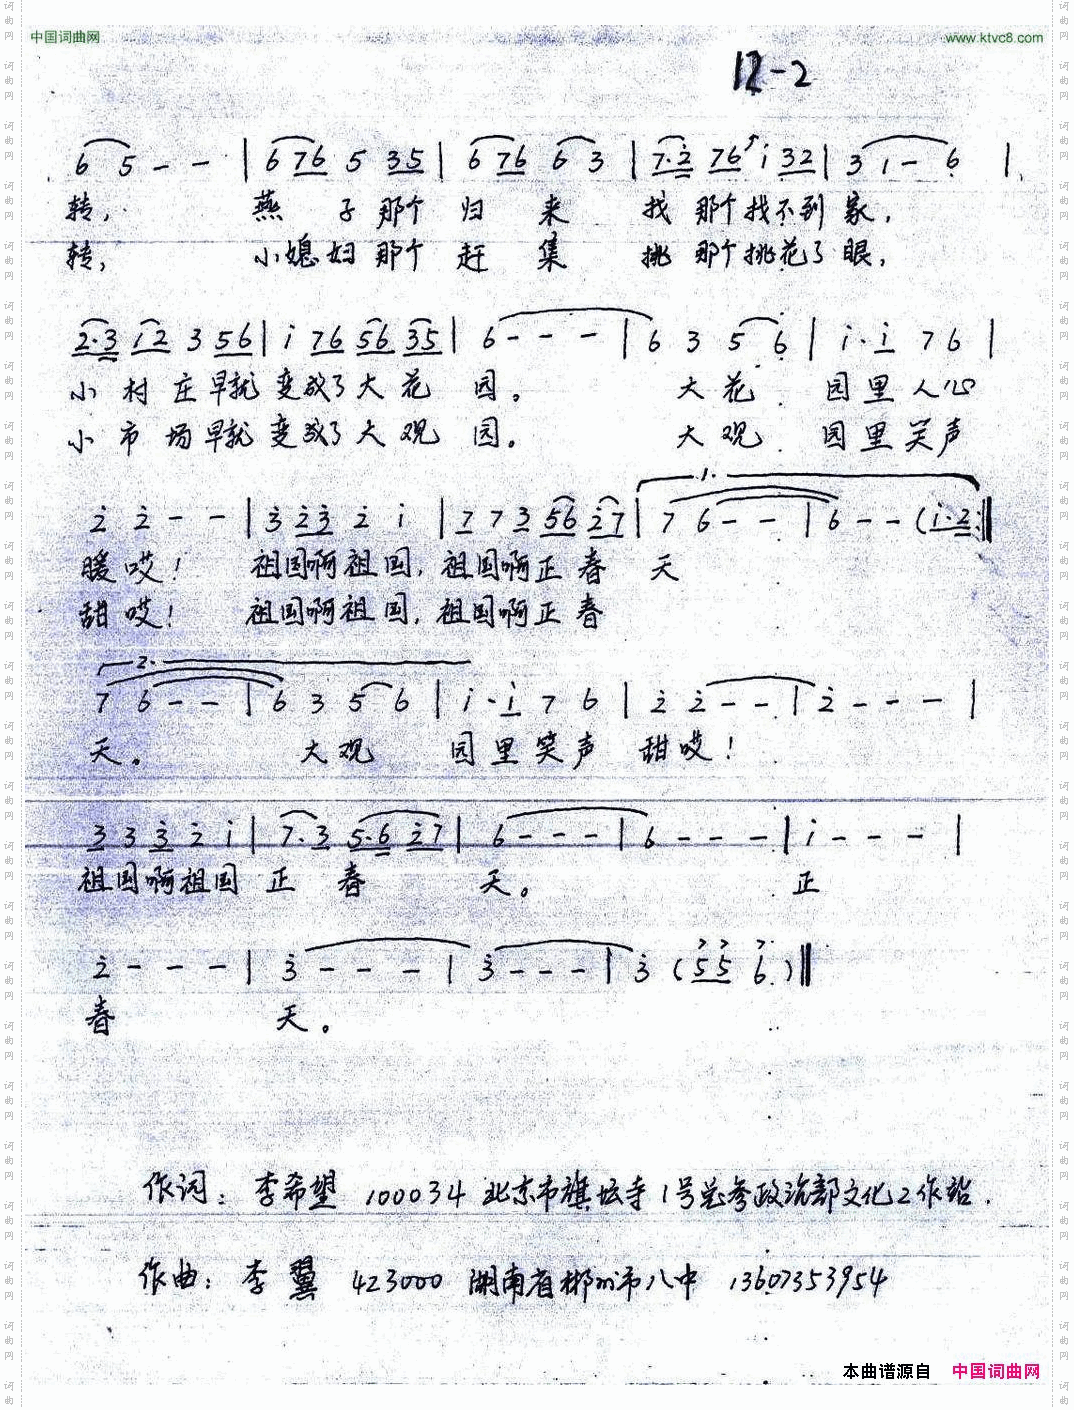 中国词曲网 www.ktvc8.com
12-2
6 5 - - | 6 76 5 35 | 6 76 6 3 | 7·2 76 i 32 | 3 1 - 6 |
转, 燕 子 那个 归 来 找 那个找不到 家,
转, 小媳妇 那个 赶 集 挑 那个挑花了 眼,
2·3 i2 3 56 | i 76 56 35 | 6 - - - | 6 3 5 6 | i·i 7 6 |
小 村 庄 早就 变成了 大 花 园。 大 花 园里人心
小 市 场 早就 变成了 大 观 园。 大 观 园里笑声
1.
2 2 - - | 3 23 2 i | 7 7 3 56 27 | 7 6 - - | 6 - - (i·2 :||
暖 哎! 祖国啊祖国, 祖国啊正 春 天
甜 哎! 祖国啊祖国, 祖国啊正 春
2.
7 6 - - | 6 3 5 6 | i·i 7 6 | 2 2 - - | 2 - - - |
天。 大 观 园里笑声 甜哎!
3 3 3 2 i | 7·3 5·6 27 | 6 - - - | 6 - - - | i - - - |
祖国啊祖国 正 春 天。 正
2 - - - | 3 - - - | 3 - - - | 3 (55 6 ) ||
春 天。
作词: 李希望 100034 北京市旗坛寺1号总参政治部文化工作站.
作曲: 李 翼 423000 湖南省郴州市八中 13607353954
本曲谱源自 中国词曲网